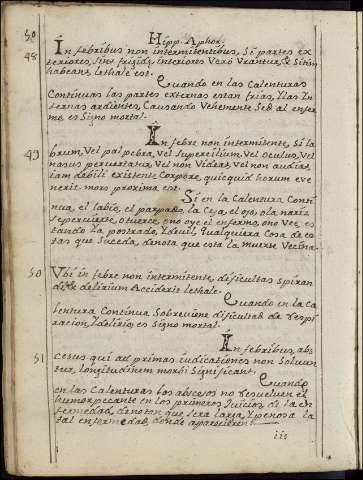 50 Hipp. Aphor.
48 In febribus non intermitentibus, Si partes ex
teriores, sint frigidæ interiores Vero Vrantur, & Sitim
habeant lethale est.
Cuando en las Calenturas
Continuas las partes externas estan frias, Ylas In
ternas ardientes, Causando Vehemente Sed al enfer
mo, es Signo mortal.
49 In febre non intermitente, Si la
brum, Vel palpebra, Vel Supercilium, Vel oculus, Vel
nasus pervertatur, Vel non Videat, Vel non audiat,
iam debili existente Corpore, quicquid horum eve
nerit mors proxima est.
Si en la Calentura Conti
nua, el labio, el parpado, la Ceja, el ojo, o la nariz
Sepervierte, otuerce, ono oye el enfermo, ono Vee, es
tando Ya postrado, Ydevil, Qualquiera Cosa de es
tas que Suceda, denota que esta la muerte Vecina.
50 Vbi in febre non intermitente, dificultas Spiran
di & delirium Acciderit lethale.
Cuando en la Ca
lentura Continua Sobreviene dificultad de respi
racion, Ydelirio, es Signo mortal.
51 In febribus, abs
cesus qui ad primas iudicationes non Soluun
tur, longitudinem morbi Significant.
Cuando
en las Calenturas los abscesos no resuelven el
humor pecante en los primeros Juicios de la en
fermedad, denotan que sera larga, Y penosa la
tal enfermedad, donde aparecieren.